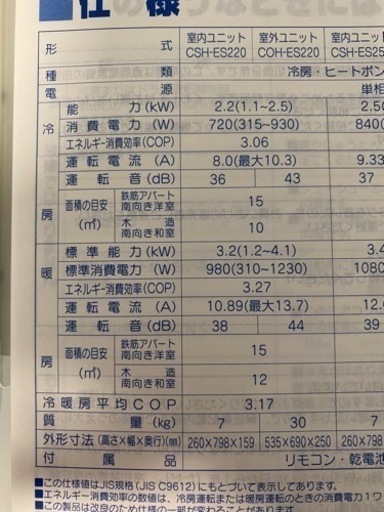 ■仕の様
形 式 室内ユニット CSH-ES220 室外ユニット COH-ES220 室内ユニット CSH-ES25
種 類 冷房・ヒートポン
電 源 単相
冷房
能 力(kW) 2.2(1.1~2.5) 2.5(
消費電力(W) 720(315~930) 840(
エネルギー消費効率(COP) 3.06
運転電流(A) 8.0(最大10.3) 9.33
運転音(dB) 36 43 37
面積の目安(㎡) 鉄筋アパート南向き洋室 15
木造南向き和室 10
暖房
標準能力(kW) 3.2(1.2~4.1) 3.4
標準消費電力(W) 980(310~1230) 1080
エネルギー消費効率(COP) 3.27
運転電流(A) 10.89(最大13.7) 11.
運転音(dB) 38 44 39
面積の目安(㎡) 鉄筋アパート南向き洋室 15
木造南向き和室 12
冷暖房平均COP 3.17
質 量(kg) 7 30 7
外形寸法(高さ×幅×奥行)(mm) 260×798×159 535×690×250 260×798
付 属 品 リモコン・乾電池
■この仕様値はJIS規格(JIS C9612)にもとづいて表示してあります。
■エネルギー消費効率の数値は、冷房運転または暖房運転のときの消費電力1ワ
■この製品は改良のため仕様の一部が変わることがあります。